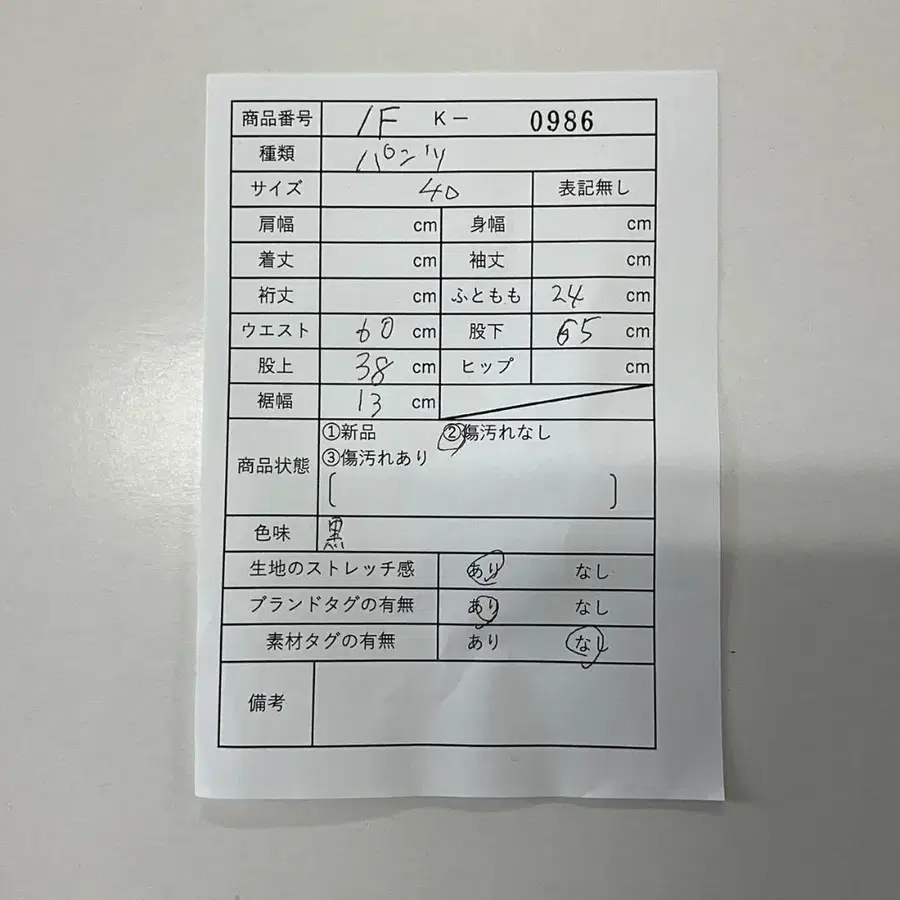 商品番号 1F K- 0986
種類 パンツ
サイズ 40 表記無し
肩幅 cm 身幅 cm
着丈 cm 袖丈 cm
裄丈 cm ふともも 24 cm
ウエスト 60 cm 股下 65 cm
股上 38 cm ヒップ cm
裾幅 13 cm
①新品 ②傷汚れなし
③傷汚れあり
商品状態
[ ]
色味 黒
生地のストレッチ感 あり なし
ブランドタグの有無 あり なし
素材タグの有無 あり なし
備考